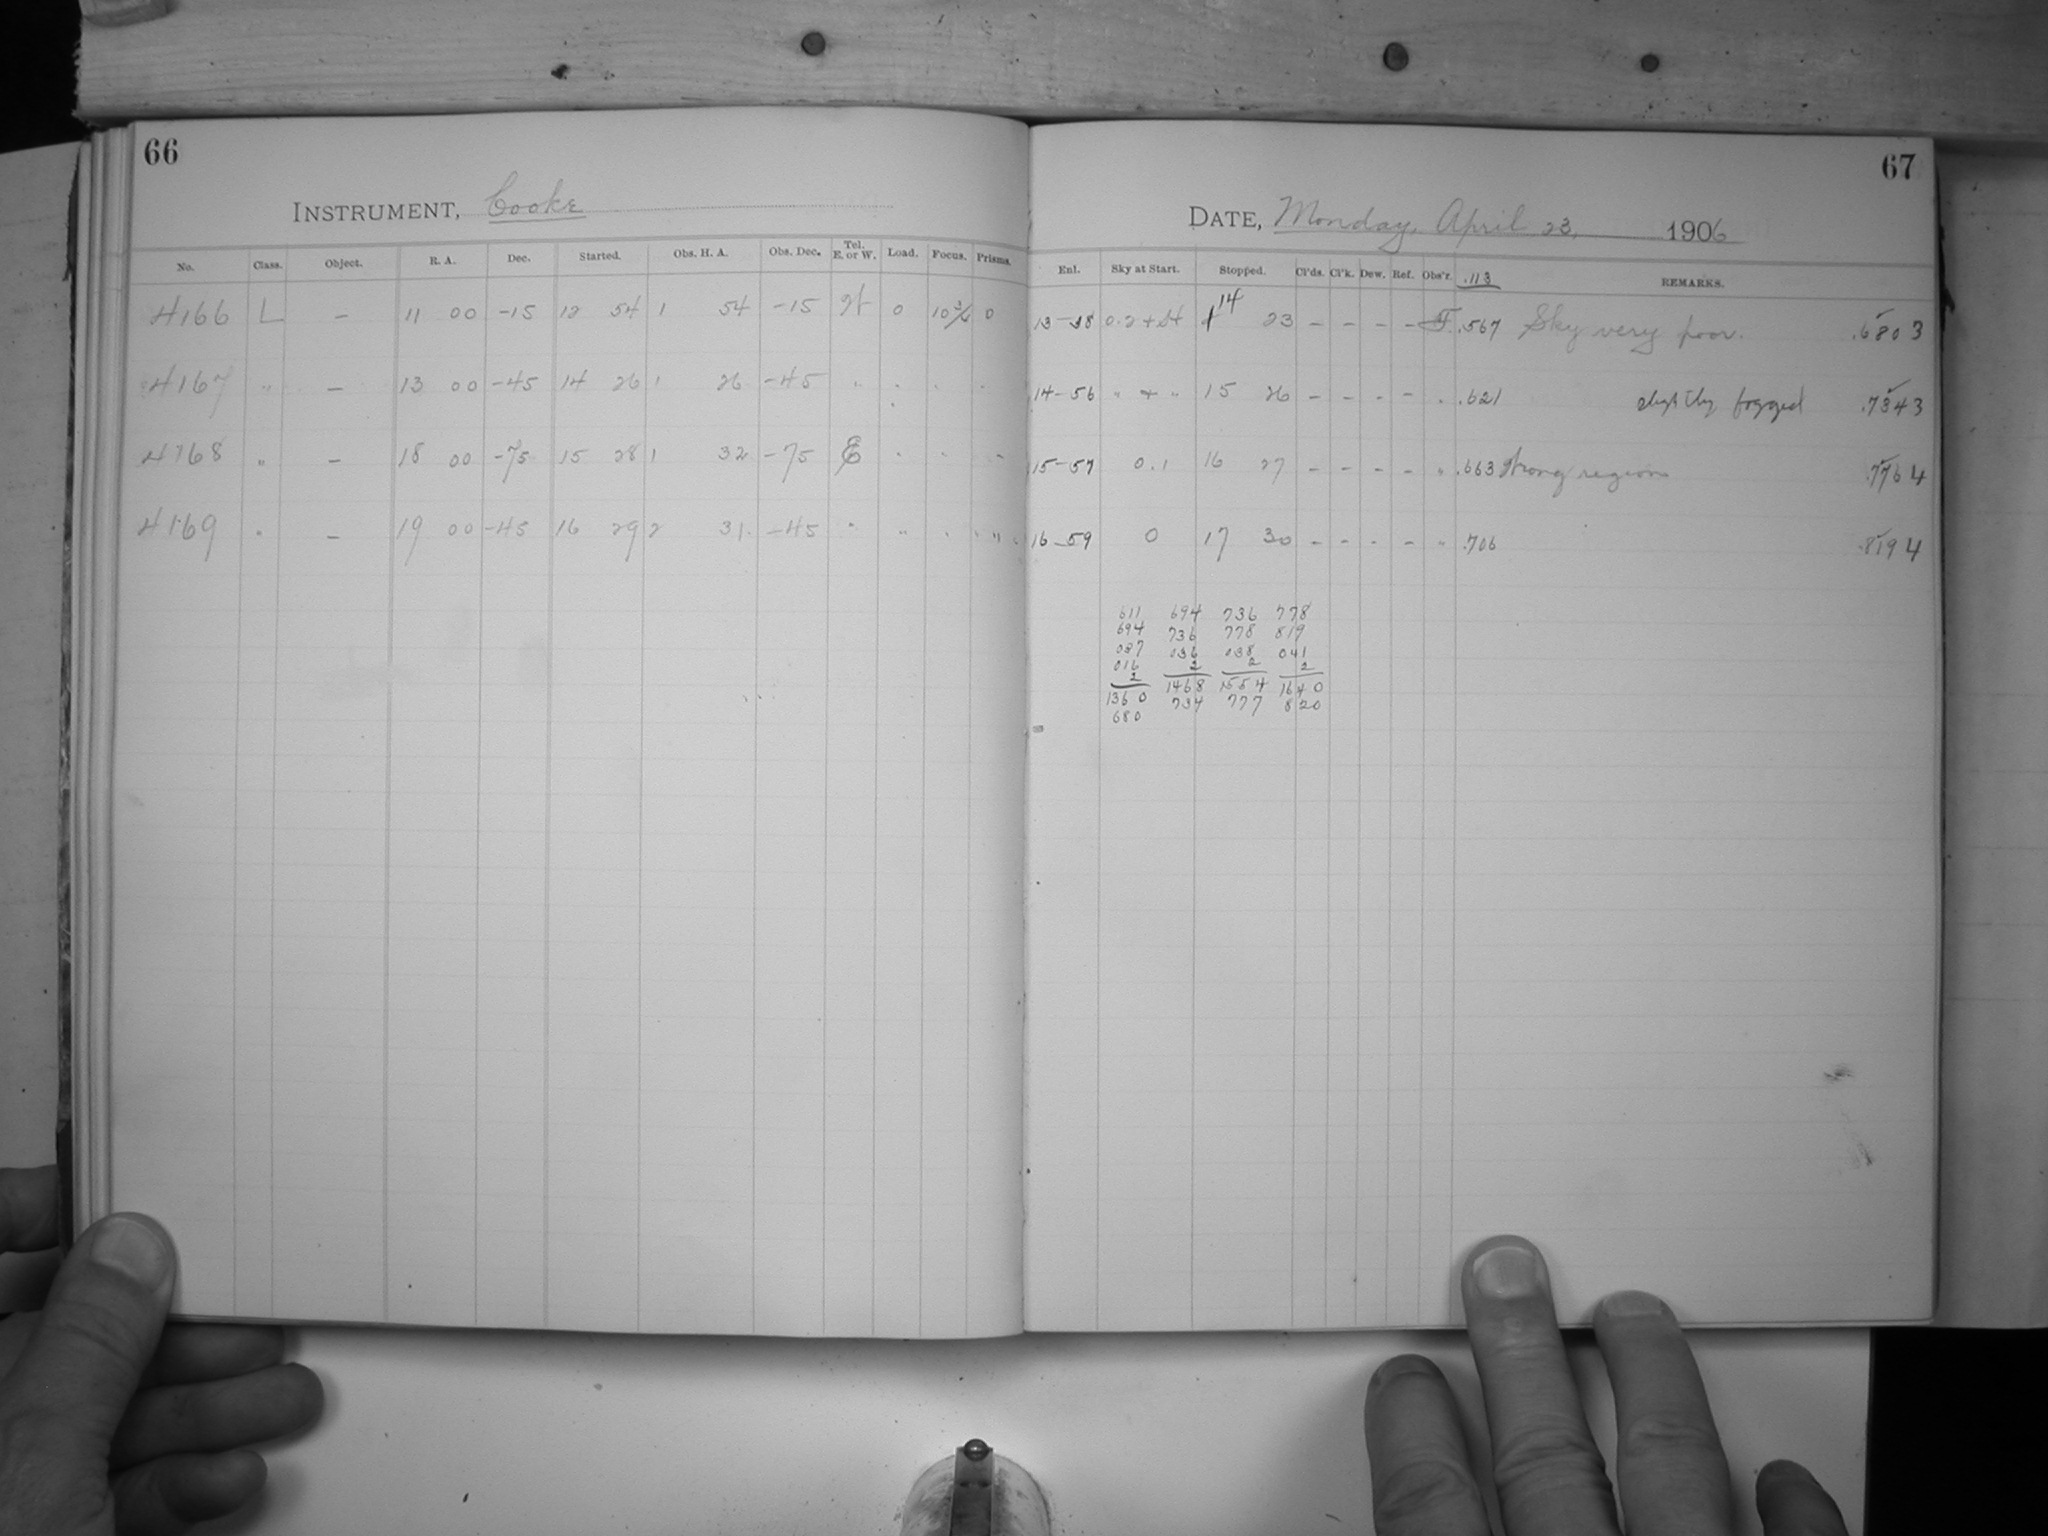 66
INSTRUMENT, Cooke
No. Class. Object. R. A. Dec. Started. Obs. H. A. Obs. Dec. Tel. E. or W. Load. Focus. Prisms.
4166 L – 11 00 -15 12 54 1 54 -15 W 0 0
4167 " – 13 00 -45 14 26 1 26 -45 " " " "
4168 " – 18 00 -75 15 28 1 32 -75 E " " "
4169 " – 19 00 -45 16 29 2 31 -45 " " " "
67
DATE, Monday, April 23, 1906
Enl. Sky at Start. Stopped. Cl'ds. Cl'k. Dew. Ref. Obs'r. .113 REMARKS.
13-38 0.2 + St 14 23 – – – – F. .567 Sky very poor. .6803
14-56 " + " 15 26 – – – – " .621 slightly fogged .7343
15-57 0.1 16 27 – – – – " .663 Strong region .7764
16-59 0 17 30 – – – – " .706 .8194
611 694 736 778
694 736 778 819
037 036 038 041
016 2 2 2
2 1468 1554 1640
1360 734 777 820
680